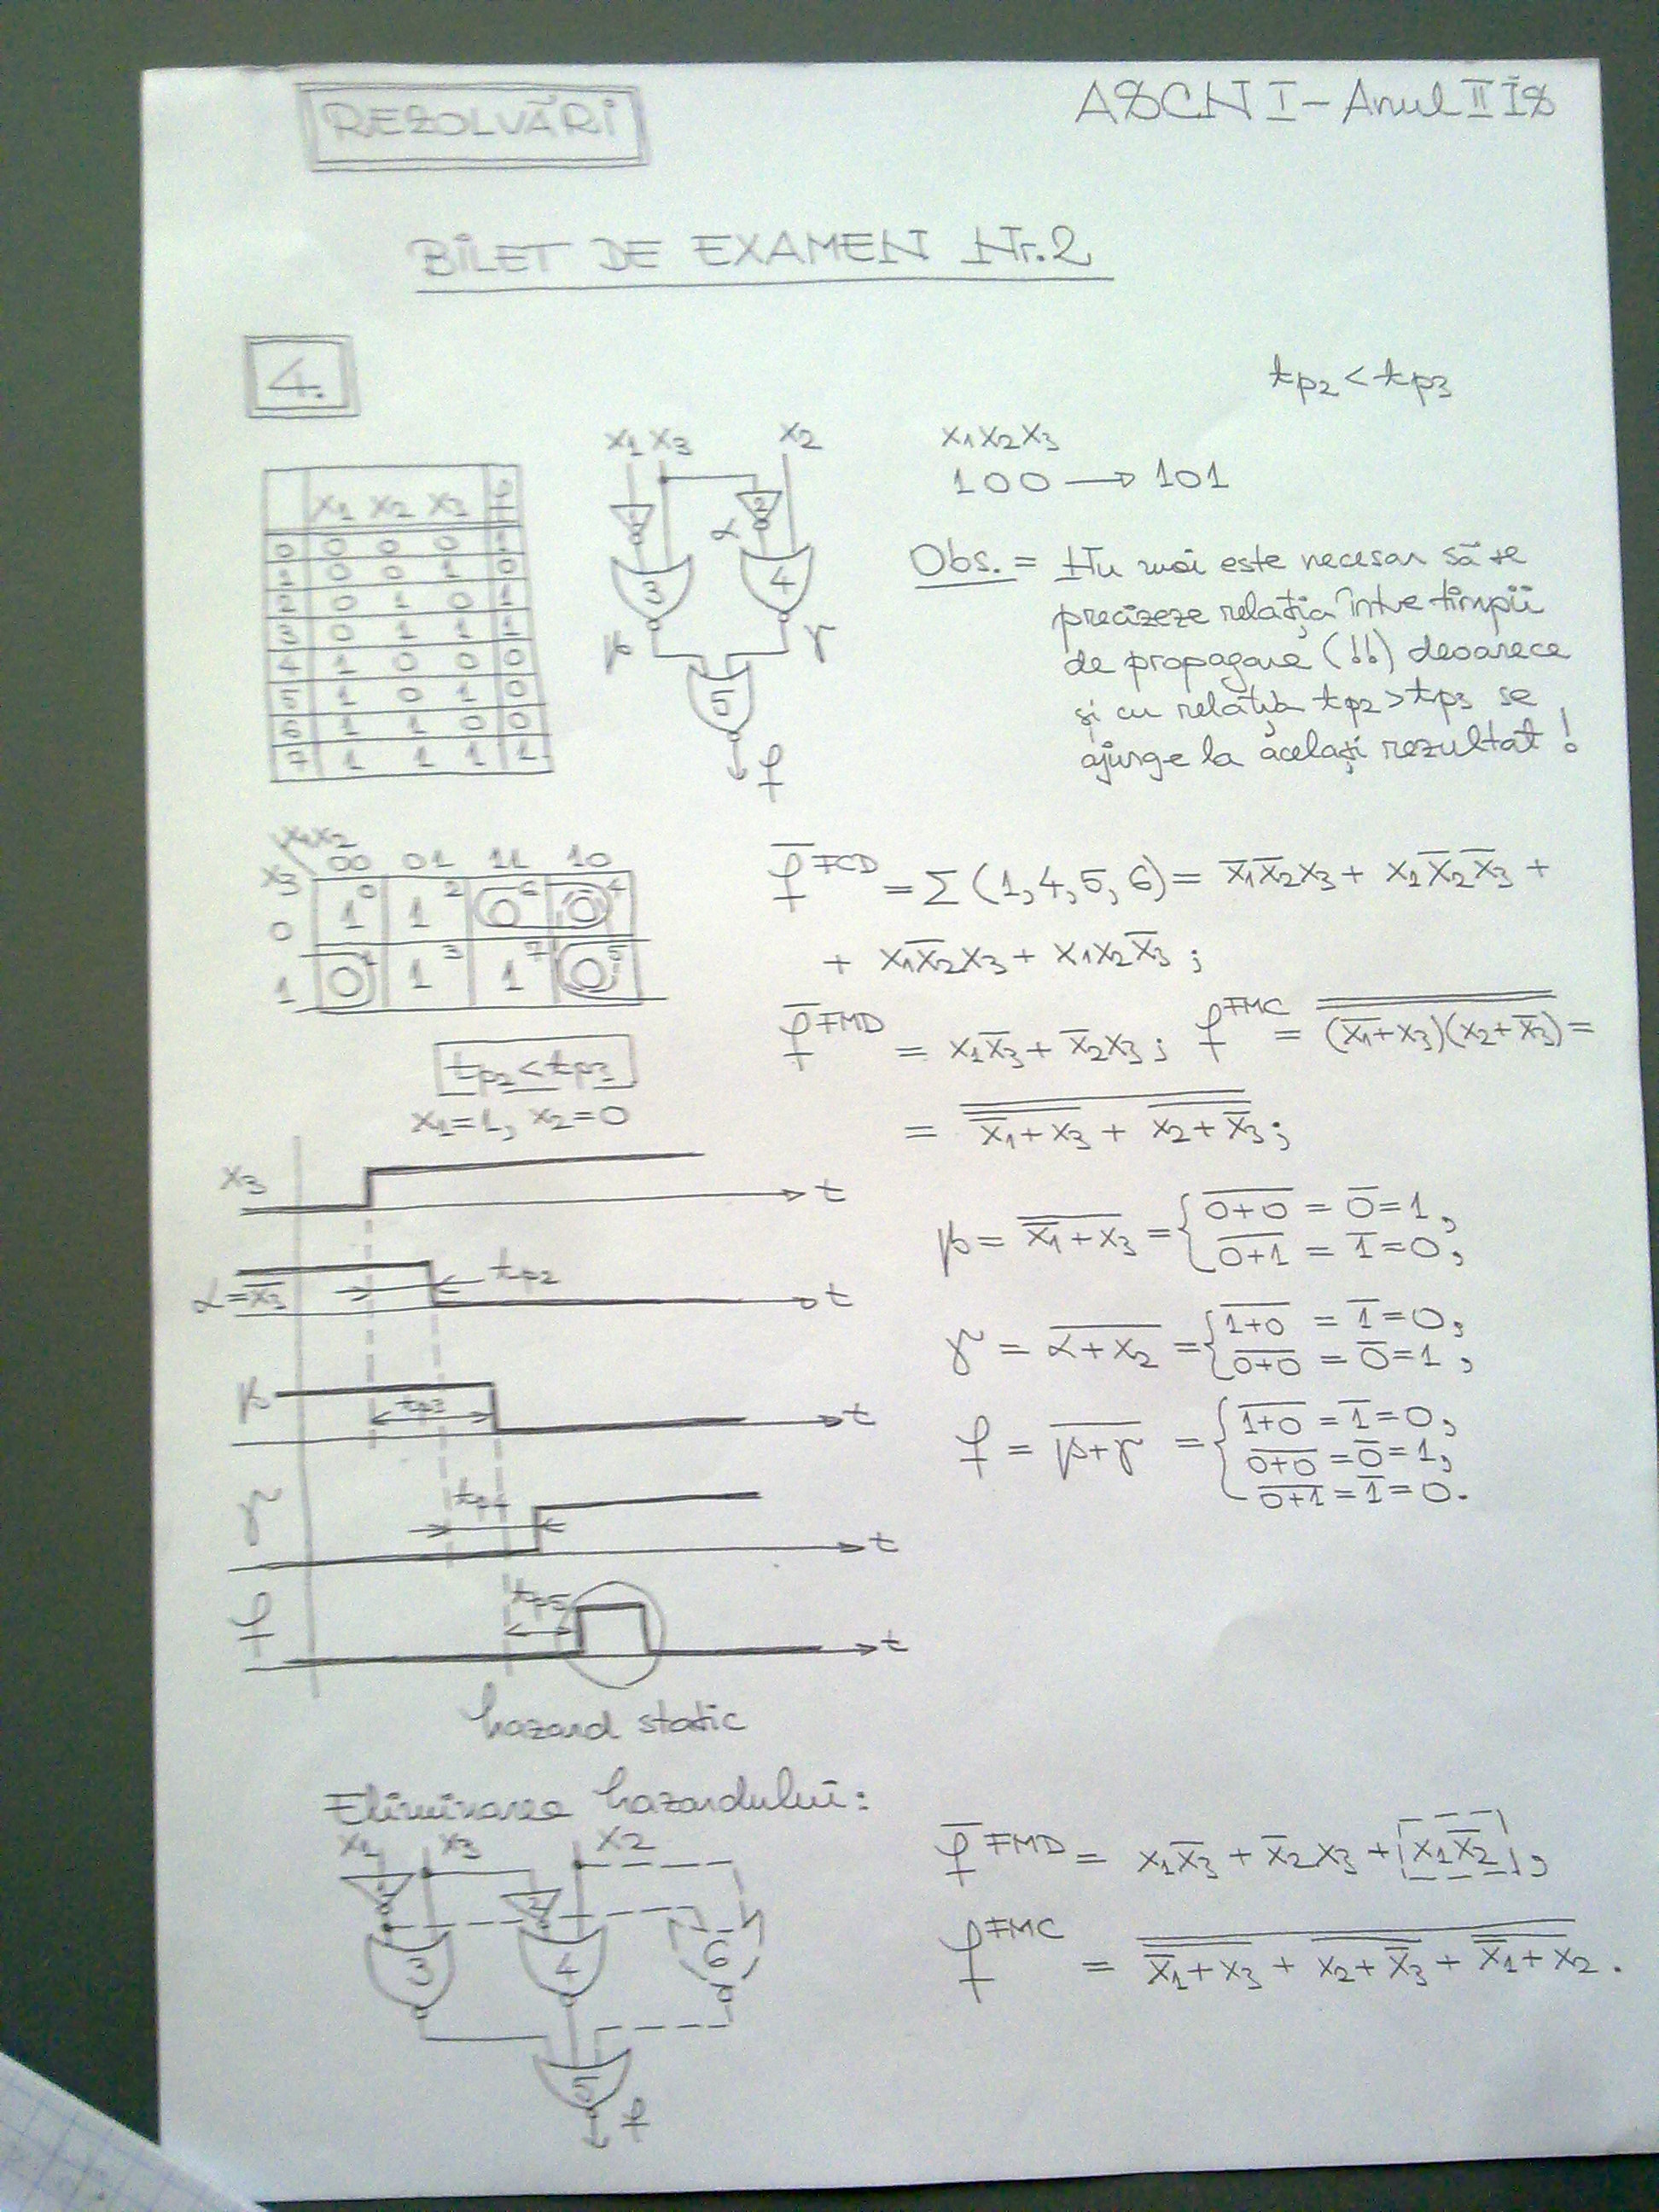 REZOLVĂRI
ASCN I - Anul II IS
BILET DE EXAMEN Nr.2
4.
tp2 < tp3
x1 x3 x2
x1x2x3
100 → 101
x1 x2 x3 f
0 0 0 0 1
1 0 0 1 0
2 0 1 0 1
3 0 1 1 1
4 1 0 0 0
5 1 0 1 0
6 1 1 0 0
7 1 1 1 1
1 2
α
3 4
β γ
5
f
Obs. = Nu mai este necesar să se
precizeze relația între timpii
de propagare (!!) deoarece
și cu relația tp2 > tp3 se
ajunge la același rezultat!
x1x2
x3 00 01 11 10
0 1 0 1 2 0 6 0 4
1 0 1 1 3 1 7 0 5
f̅ FCD = Σ (1, 4, 5, 6) = x̅1x̅2x3 + x1x̅2x̅3 +
+ x1x̅2x3 + x1x2x̅3 ;
f̅ FMD = x1x̅3 + x̅2x3 ; f FMC = (x̅1+x3)(x2+x̅3) =
= x̅1+x3 + x2+x̅3 ;
tp2 < tp3
x1=1, x2=0
x3 t
α=x̅3 tp2 t
β tp3 t
γ tp4 t
f tp5 t
hazard static
β = x̅1+x3 = { 0+0 = 0̅ = 1,
0+1 = 1̅ = 0,
γ = α+x2 = { 1+0 = 1̅ = 0,
0+0 = 0̅ = 1,
f = β+γ = { 1+0 = 1̅ = 0,
0+0 = 0̅ = 1,
0+1 = 1̅ = 0.
Eliminarea hazardului:
x1 x3 x2
1 2
3 4 6
5
f
f̅ FMD = x1x̅3 + x̅2x3 + x1x̅2 ,
f FMC = x̅1+x3 + x2+x̅3 + x̅1+x2 .